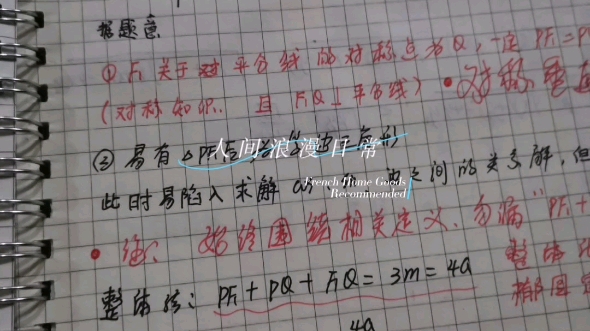 据题意
① F₁关于对平分线的对称点为Q,一定 PF₁=P
(对称知识. 且 F₁Q⊥平分线) •对称垂直
② 易有△PF₁
人间浪漫日常
此时易陷入求解 之间的关系解,但
French Home Goods
Recommended
• 注: 始终围绕相关定义、勿漏"PF₁+
整体法: PF₁+PQ+F₁Q=3m=4a
整体
4a